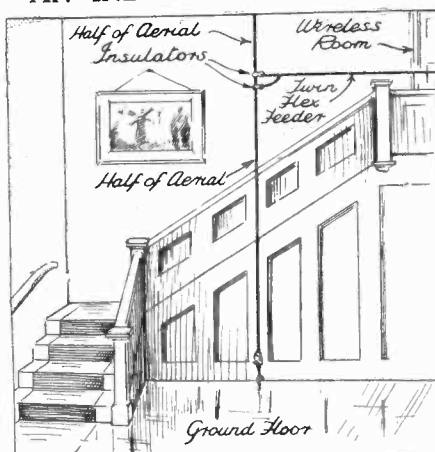 Half of Aerial
Insulators
Wireless
Room
Twin
Flex
Feeder
Half of Aerial
Ground Floor